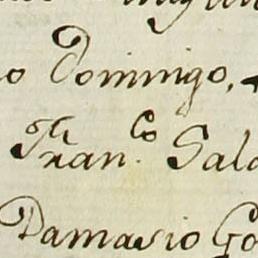 o Domingo,
Fran.co Sala
Damasio Go